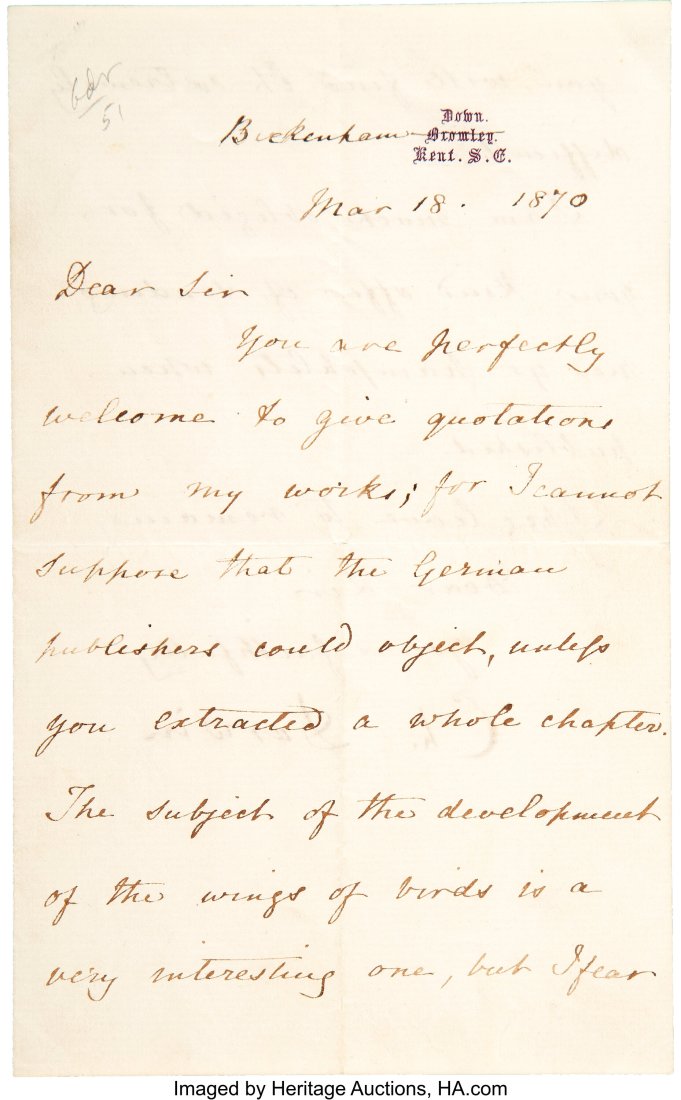 Down.
Beckenham Bromley.
Kent. S.E.
Mar 18. 1870
Dear Sir
You are perfectly
welcome to give quotations
from my works; for I cannot
suppose that the German
publishers could object, unless
you extracted a whole chapter.
The subject of the development
of the wings of birds is a
very interesting one, but I fear
Imaged by Heritage Auctions, HA.com